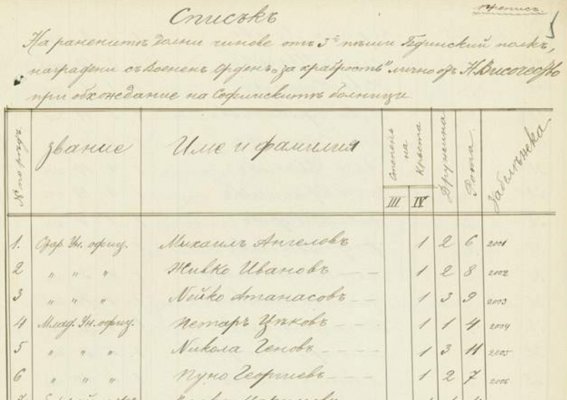 препис.
Списъкъ
На раненитѣ долни чинове отъ 3й пѣши Бдински полкъ,
наградени съ Военен Орденъ „за храбрость" лично отъ Н. Височество
при обхождание на Софийскитѣ болници.
№ по редъ звание Име и фамилия Степень на Кръста III IV Дружина Рота Забѣлѣжка
1. Стар. Ун. офиц. Михаилъ Ангеловъ 1 2 6 2001
2 " " " Живко Ивановъ 1 2 8 2002
3 " " " Нейко Атанасовъ 1 3 9 2003
4 Млад. Ун. офиц. Петаръ Цѣковъ 1 1 4 2004
5 " " " Никола Геновъ 1 3 11 2005
6 " " " Пуно Георгиевъ 1 2 7 2006